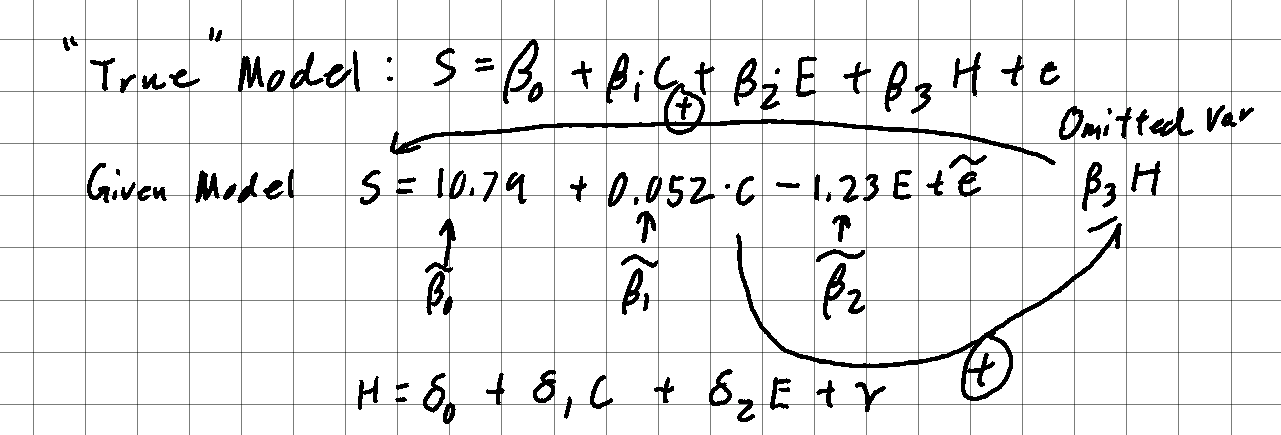 "True" Model: S = β₀ + β₁C + β₂E + β₃H + e
⊕
Omitted Var
Given Model S = 10.79 + 0.052·C − 1.23E + ẽ β₃H
β̃₀ β̃₁ β̃₂
⊕
H = δ₀ + δ₁C + δ₂E + γ